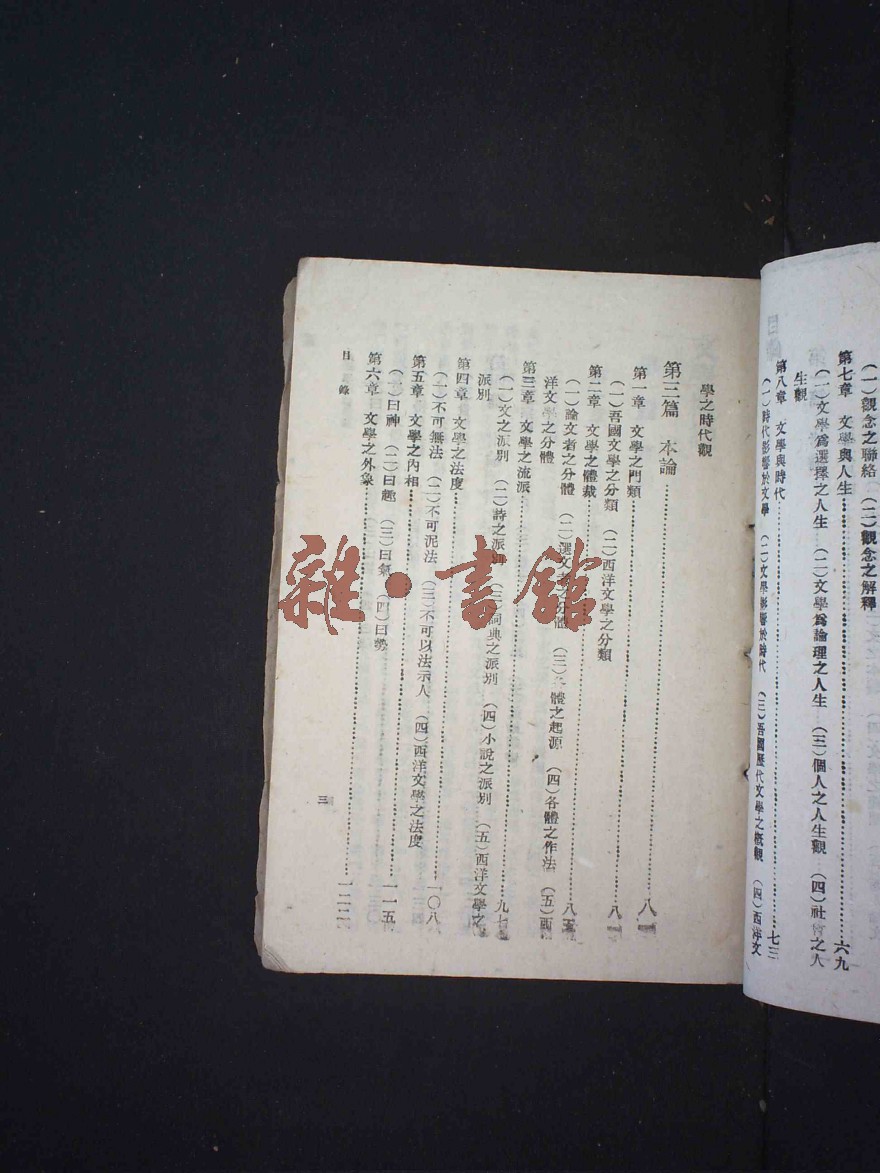 (一)觀念之聯絡 (二)觀念之解釋
第七章 文學與人生……六九
(一)文學爲選擇之人生 (二)文學爲論理之人生 (三)個人之人生觀 (四)社會之人
生觀
第八章 文學與時代……七三
(一)時代影響於文學 (二)文學影響於時代 (三)吾國歷代文學之概觀 (四)西洋文
學之時代觀
第三篇 本論……八
第一章 文學之門類……八
(一)吾國文學之分類 (二)西洋文學之分類
第二章 文學之體裁……八五
(一)論文者之分體 (二)選文者之分體 (三)各體之起源 (四)各體之作法 (五)西
洋文學之分體
第三章 文學之流派……九七
(一)文之派別 (二)詩之派別 (三)詞典之派別 (四)小說之派別 (五)西洋文學之
派別
第四章 文學之法度……一〇八
(一)不可無法 (二)不可泥法 (三)不可以法示人 (四)西洋文學之法度
第五章 文學之內相……一一五
(一)曰神 (二)曰趣 (三)曰氣 (四)曰勢
第六章 文學之外象……一二二
目錄
三
雜·書館